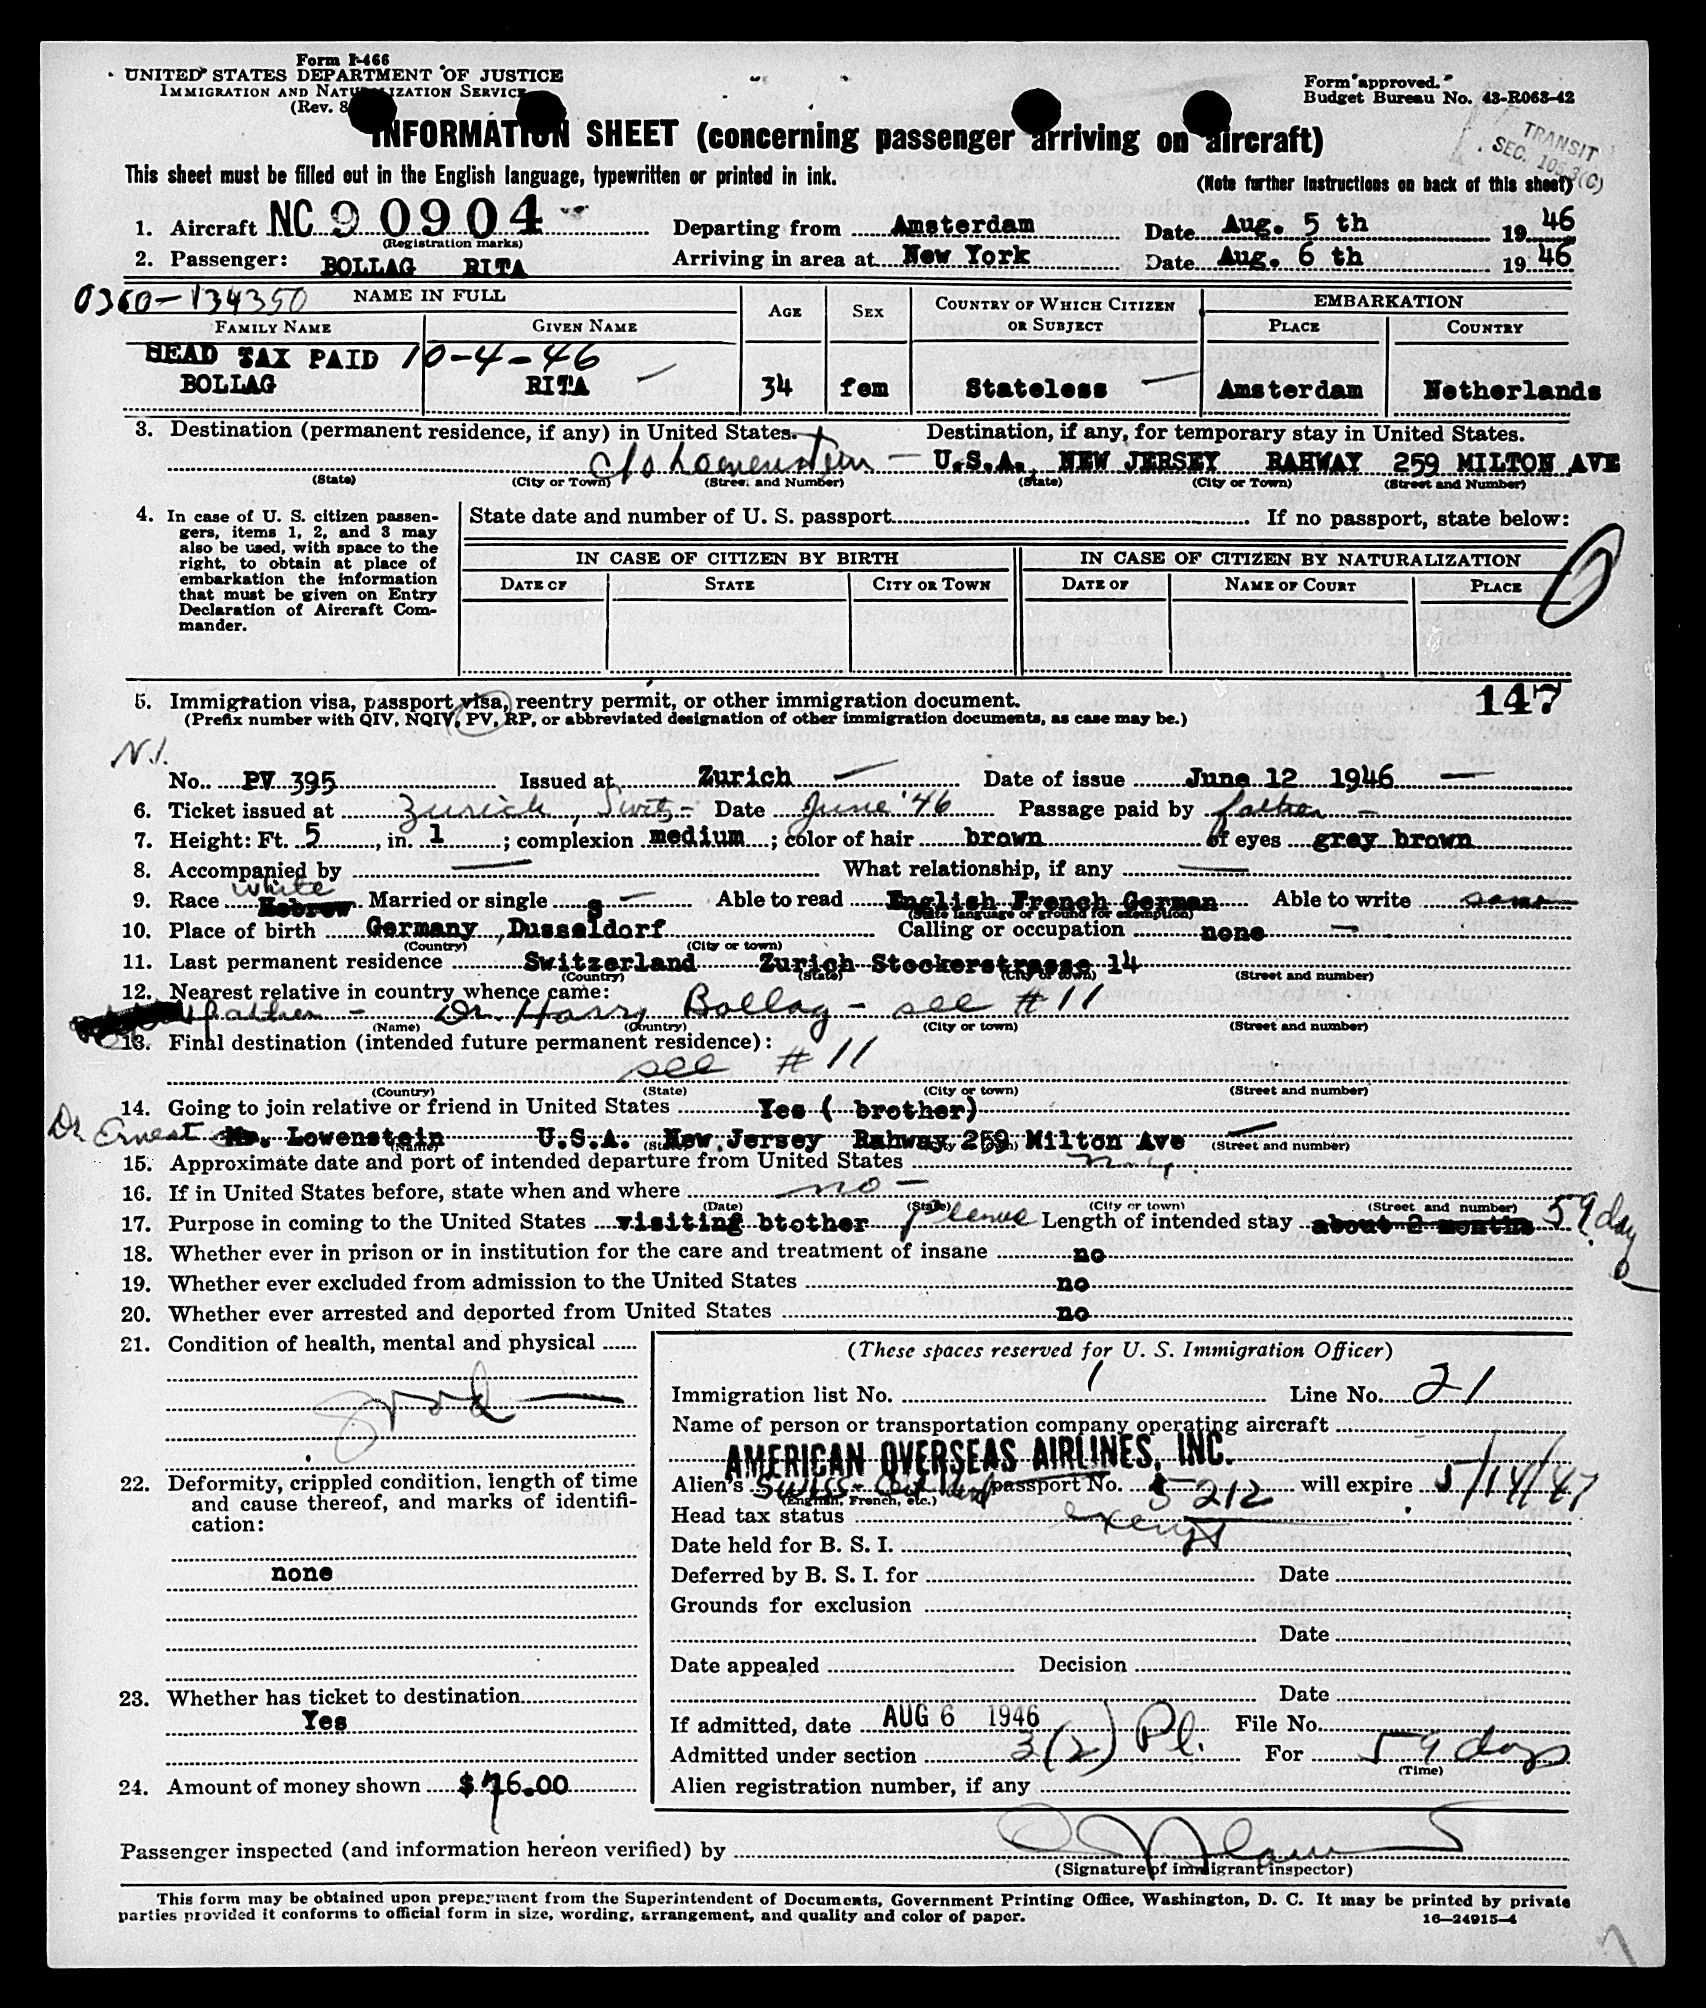 Form I-466
UNITED STATES DEPARTMENT OF JUSTICE
IMMIGRATION AND NATURALIZATION SERVICE
(Rev. 8
Form approved.
Budget Bureau No. 43-R063-42
INFORMATION SHEET (concerning passenger arriving on aircraft)
TRANSIT
SEC.
This sheet must be filled out in the English language, typewritten or printed in ink.
(Note further instructions on back of this sheet)
1. Aircraft NC 90904 Departing from Amsterdam Date Aug. 5 th 1946
(Registration marks)
2. Passenger: BOLLAG RITA Arriving in area at New York Date Aug. 6 th 1946
0360-134350
NAME IN FULL AGE SEX COUNTRY OF WHICH CITIZEN OR SUBJECT EMBARKATION
FAMILY NAME GIVEN NAME PLACE COUNTRY
HEAD TAX PAID 10-4-46
BOLLAG RITA 34 fem Stateless Amsterdam Netherlands
3. Destination (permanent residence, if any) in United States. Destination, if any, for temporary stay in United States.
c/o Loewenstein U.S.A. NEW JERSEY RAHWAY 259 MILTON AVE
(State) (City or Town) (Street and Number) (State) (City or Town) (Street and Number)
4. In case of U. S. citizen passengers, items 1, 2, and 3 may also be used, with space to the right, to obtain at place of embarkation the information that must be given on Entry Declaration of Aircraft Commander.
State date and number of U. S. passport If no passport, state below:
IN CASE OF CITIZEN BY BIRTH IN CASE OF CITIZEN BY NATURALIZATION
DATE OF STATE CITY OR TOWN DATE OF NAME OF COURT PLACE
147
5. Immigration visa, passport visa, reentry permit, or other immigration document.
(Prefix number with QIV, NQIV, PV, RP, or abbreviated designation of other immigration documents, as case may be.)
N.I.
No. PV 395 Issued at Zurich Date of issue June 12 1946
6. Ticket issued at Zurich, Switz Date June '46 Passage paid by father
7. Height: Ft. 5, in. 1; complexion medium; color of hair brown of eyes grey brown
8. Accompanied by What relationship, if any
white
9. Race Hebrew Married or single s Able to read English French German Able to write same
(State language or ground for exemption)
10. Place of birth Germany, Dusseldorf Calling or occupation none
(Country) (City or town)
11. Last permanent residence Switzerland Zurich Stockerstrasse 14
(Country) (State) (City or town) (Street and number)
12. Nearest relative in country whence came:
father - Dr. Harry Bollag - see #11
(Name) (Country) (City or town) (Street and number)
13. Final destination (intended future permanent residence):
see #11
(Country) (State) (City or town) (Street and number)
14. Going to join relative or friend in United States Yes ( brother)
Dr. Ernest Mr. Lowenstein U.S.A. New Jersey Rahway 259 Milton Ave
(Name) (State) (City or town) (Street and number)
15. Approximate date and port of intended departure from United States
16. If in United States before, state when and where no
(Date) (State) (City or town) (Street and number)
17. Purpose in coming to the United States visiting btother Length of intended stay about 2 months 59 days
18. Whether ever in prison or in institution for the care and treatment of insane no
19. Whether ever excluded from admission to the United States no
20. Whether ever arrested and deported from United States no
21. Condition of health, mental and physical
good
22. Deformity, crippled condition, length of time and cause thereof, and marks of identification:
none
23. Whether has ticket to destination
Yes
24. Amount of money shown $ 76.00
(These spaces reserved for U. S. Immigration Officer)
Immigration list No. 1 Line No. 21
Name of person or transportation company operating aircraft
AMERICAN OVERSEAS AIRLINES, INC.
Alien's Swiss passport No. 5212 will expire 5/14/47
(English, French, etc.)
Head tax status exempt
Date held for B. S. I.
Deferred by B. S. I. for Date
Grounds for exclusion
Date
Date appealed Decision
Date
If admitted, date AUG 6 1946 File No.
Admitted under section 3(2) Pl. For 59 days
(Time)
Alien registration number, if any
Passenger inspected (and information hereon verified) by
(Signature of immigrant inspector)
This form may be obtained upon prepayment from the Superintendent of Documents, Government Printing Office, Washington, D. C. It may be printed by private
parties provided it conforms to official form in size, wording, arrangement, and quality and color of paper.
16—24915-4